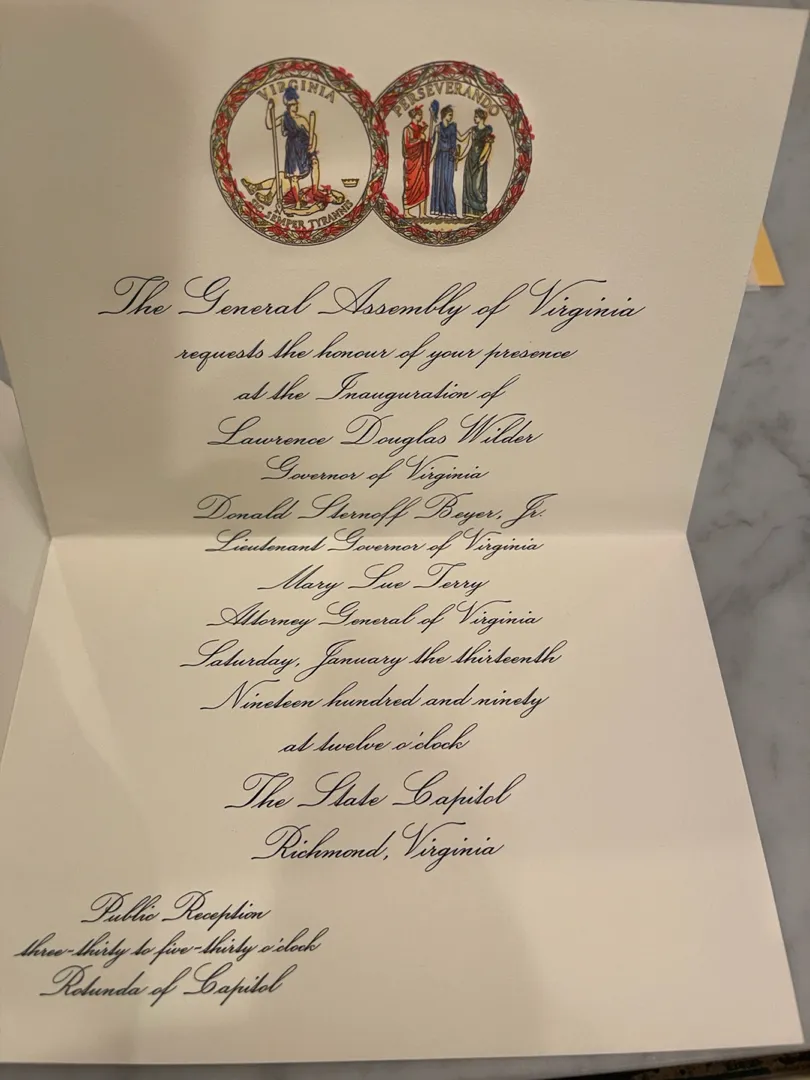 VIRGINIA
PERSEVERANDO
SIC SEMPER TYRANNIS
The General Assembly of Virginia
requests the honour of your presence
at the Inauguration of
Lawrence Douglas Wilder
Governor of Virginia
Donald Sternoff Beyer, Jr.
Lieutenant Governor of Virginia
Mary Sue Terry
Attorney General of Virginia
Saturday, January the thirteenth
Nineteen hundred and ninety
at twelve o'clock
The State Capitol
Richmond, Virginia
Public Reception
three-thirty to five-thirty o'clock
Rotunda of Capitol